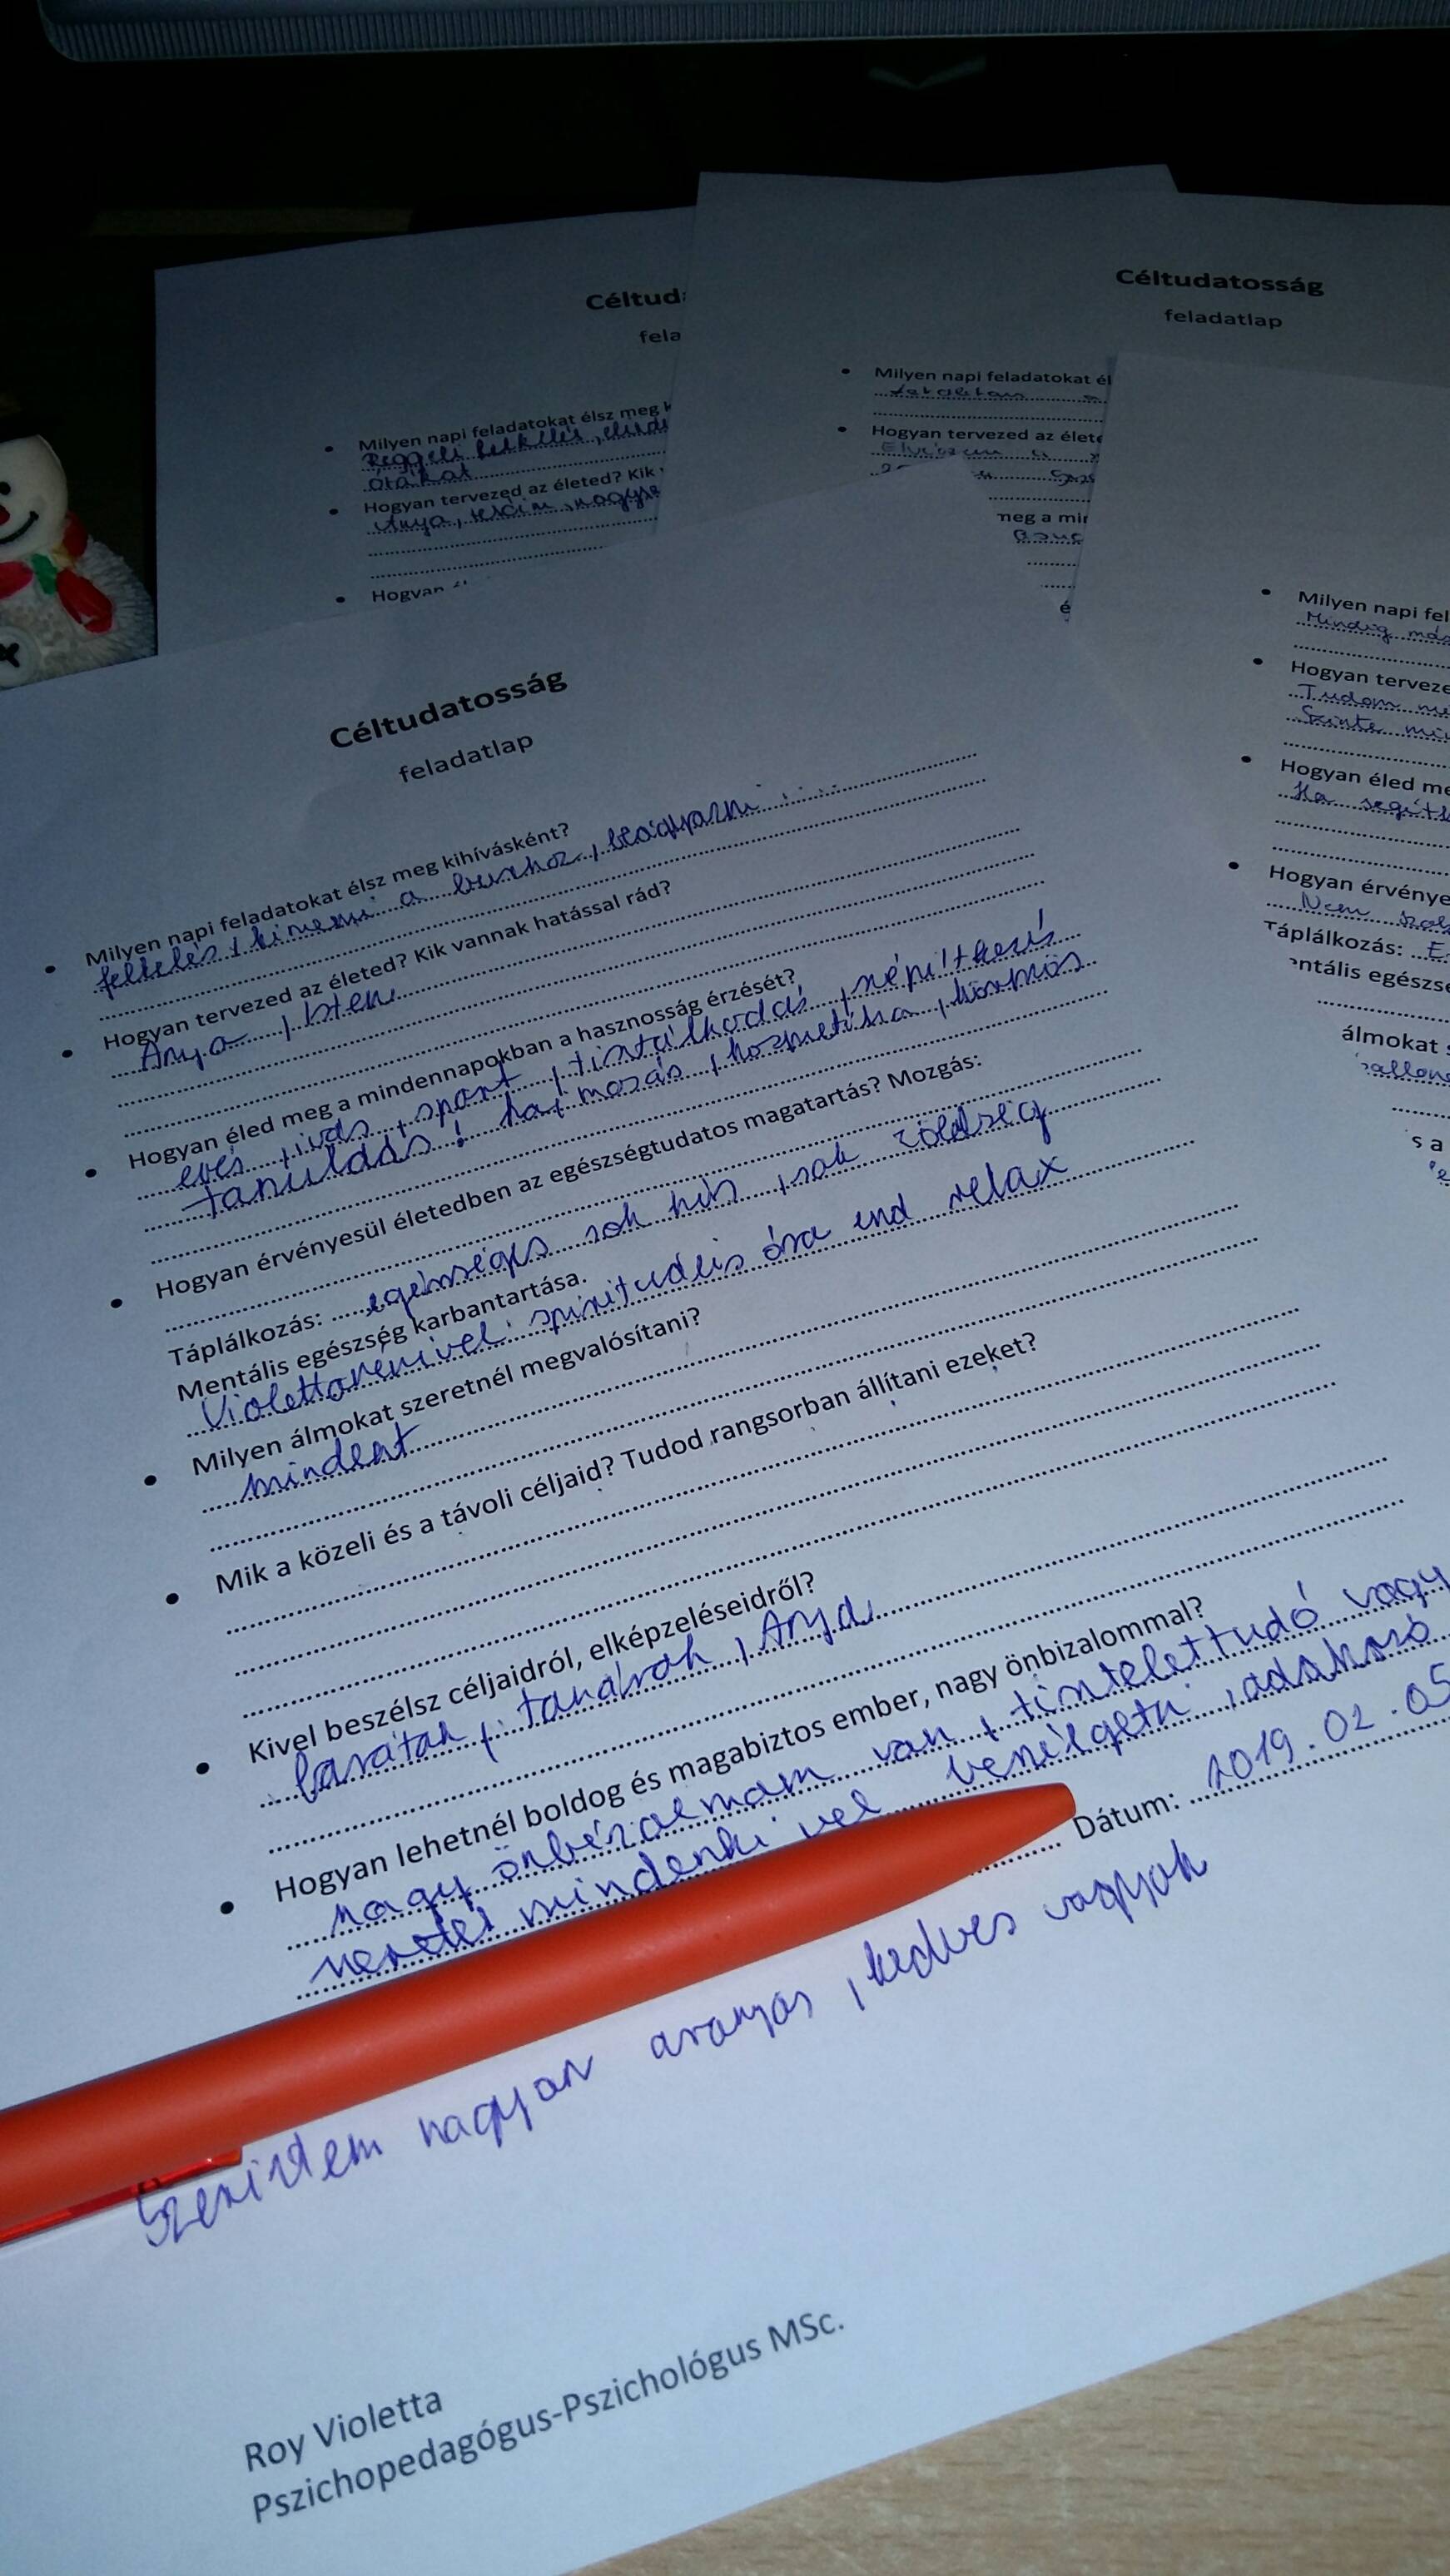 Céltud
fela
Milyen napi feladatokat élsz meg k
Reggeli felkelés,
órákat
Hogyan tervezed az életed? Kik
Anya,
Hogyan
Céltudatosság
feladatlap
Milyen napi feladatokat él
Hogyan tervezed az élete
meg a min
é
Milyen napi fel
Mindig más
Hogyan terveze
Tudom
Szinte
Hogyan éled me
Ha segít
Hogyan érvénye
Nem
Táplálkozás: E
ntális egészsé
álmokat s
s a
Céltudatosság
feladatlap
Milyen napi feladatokat élsz meg kihívásként?
felkelés, kimenni a buszhoz, beágyazni ....
Hogyan tervezed az életed? Kik vannak hatással rád?
Anya, Isten
Hogyan éled meg a mindennapokban a hasznosság érzését?
evés, ivás, sport, tisztálkodás, szépítkezés
tanulás! hajmosás, kozmetika, körmös
Hogyan érvényesül életedben az egészségtudatos magatartás? Mozgás:
Táplálkozás: egészséges sok hús, sok zöldség
Mentális egészség karbantartása.
spirituális óra end relax
Milyen álmokat szeretnél megvalósítani?
mindent
Mik a közeli és a távoli céljaid? Tudod rangsorban állítani ezeket?
Kivel beszélsz céljaidról, elképzeléseidről?
barátak, tanárok, Anya
Hogyan lehetnél boldog és magabiztos ember, nagy önbizalommal?
nagy önbizalmam van, tisztelettudó vagy
mindenkivel beszélgetni, adakozó
Dátum: 2019.02.05
Szerintem nagyon aranyos, kedves vagyok
Roy Violetta
Pszichopedagógus-Pszichológus MSc.